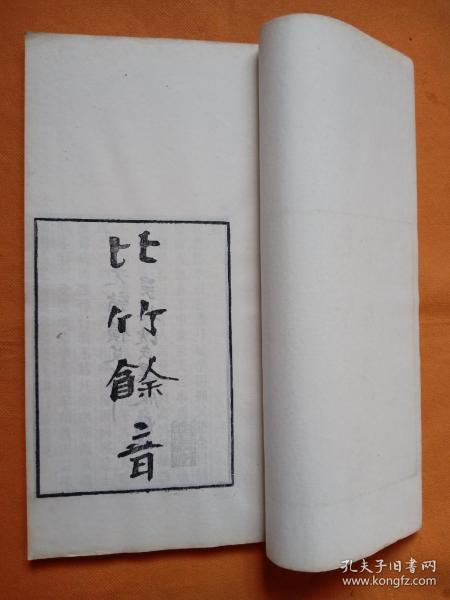 比竹餘音
孔夫子旧书网
www.kongfz.com